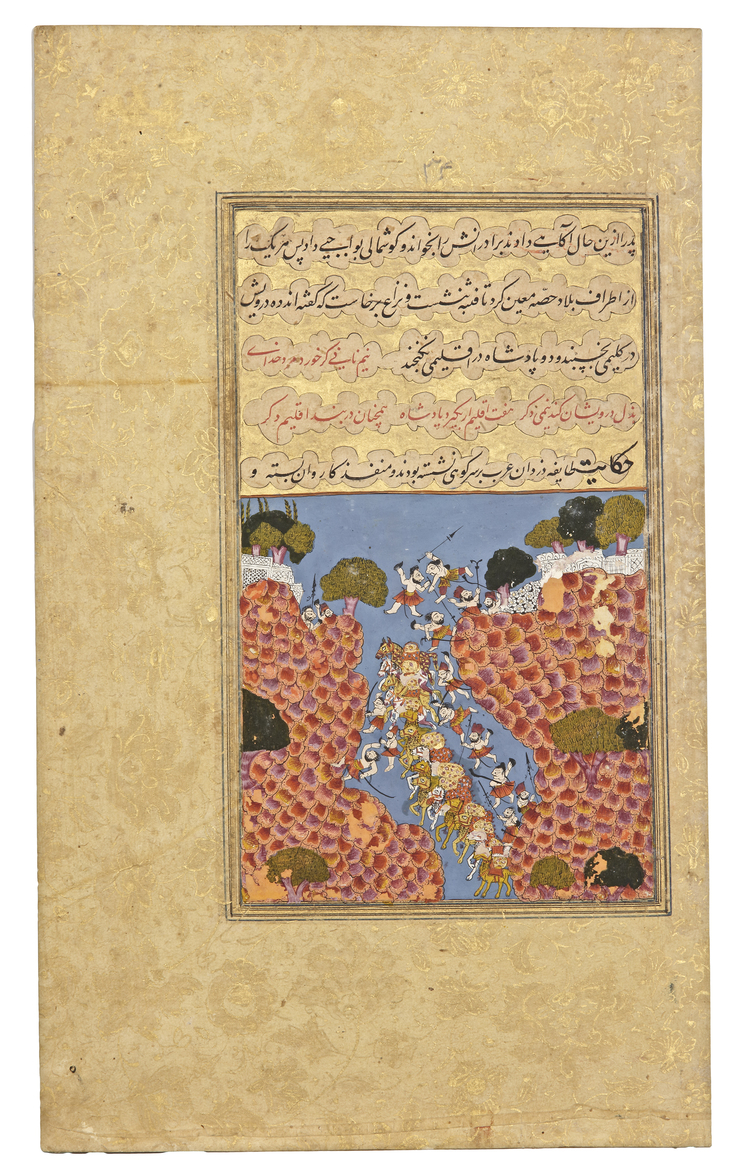 ۱۲۴
پدر را ازین حال آگاهی دادند برادرانش را بخواند و گوشمالی بواجبی داد پس هر یک را
از اطراف بلاد حصه معین کرد تا فتنه بنشست و نزاع برخاست که گفته اند ده درویش
در گلیمی بخسبند و دو پادشاه در اقلیمی نگنجند نیم نانی گر خورد مرد خدای
بذل درویشان کند نیمی دگر هفت اقلیم ار بگیرد پادشاه همچنان در بند اقلیم دگر
حکایت طایفه دزدان عرب بر سر کوهی نشسته بودند و منفذ کاروان بسته و